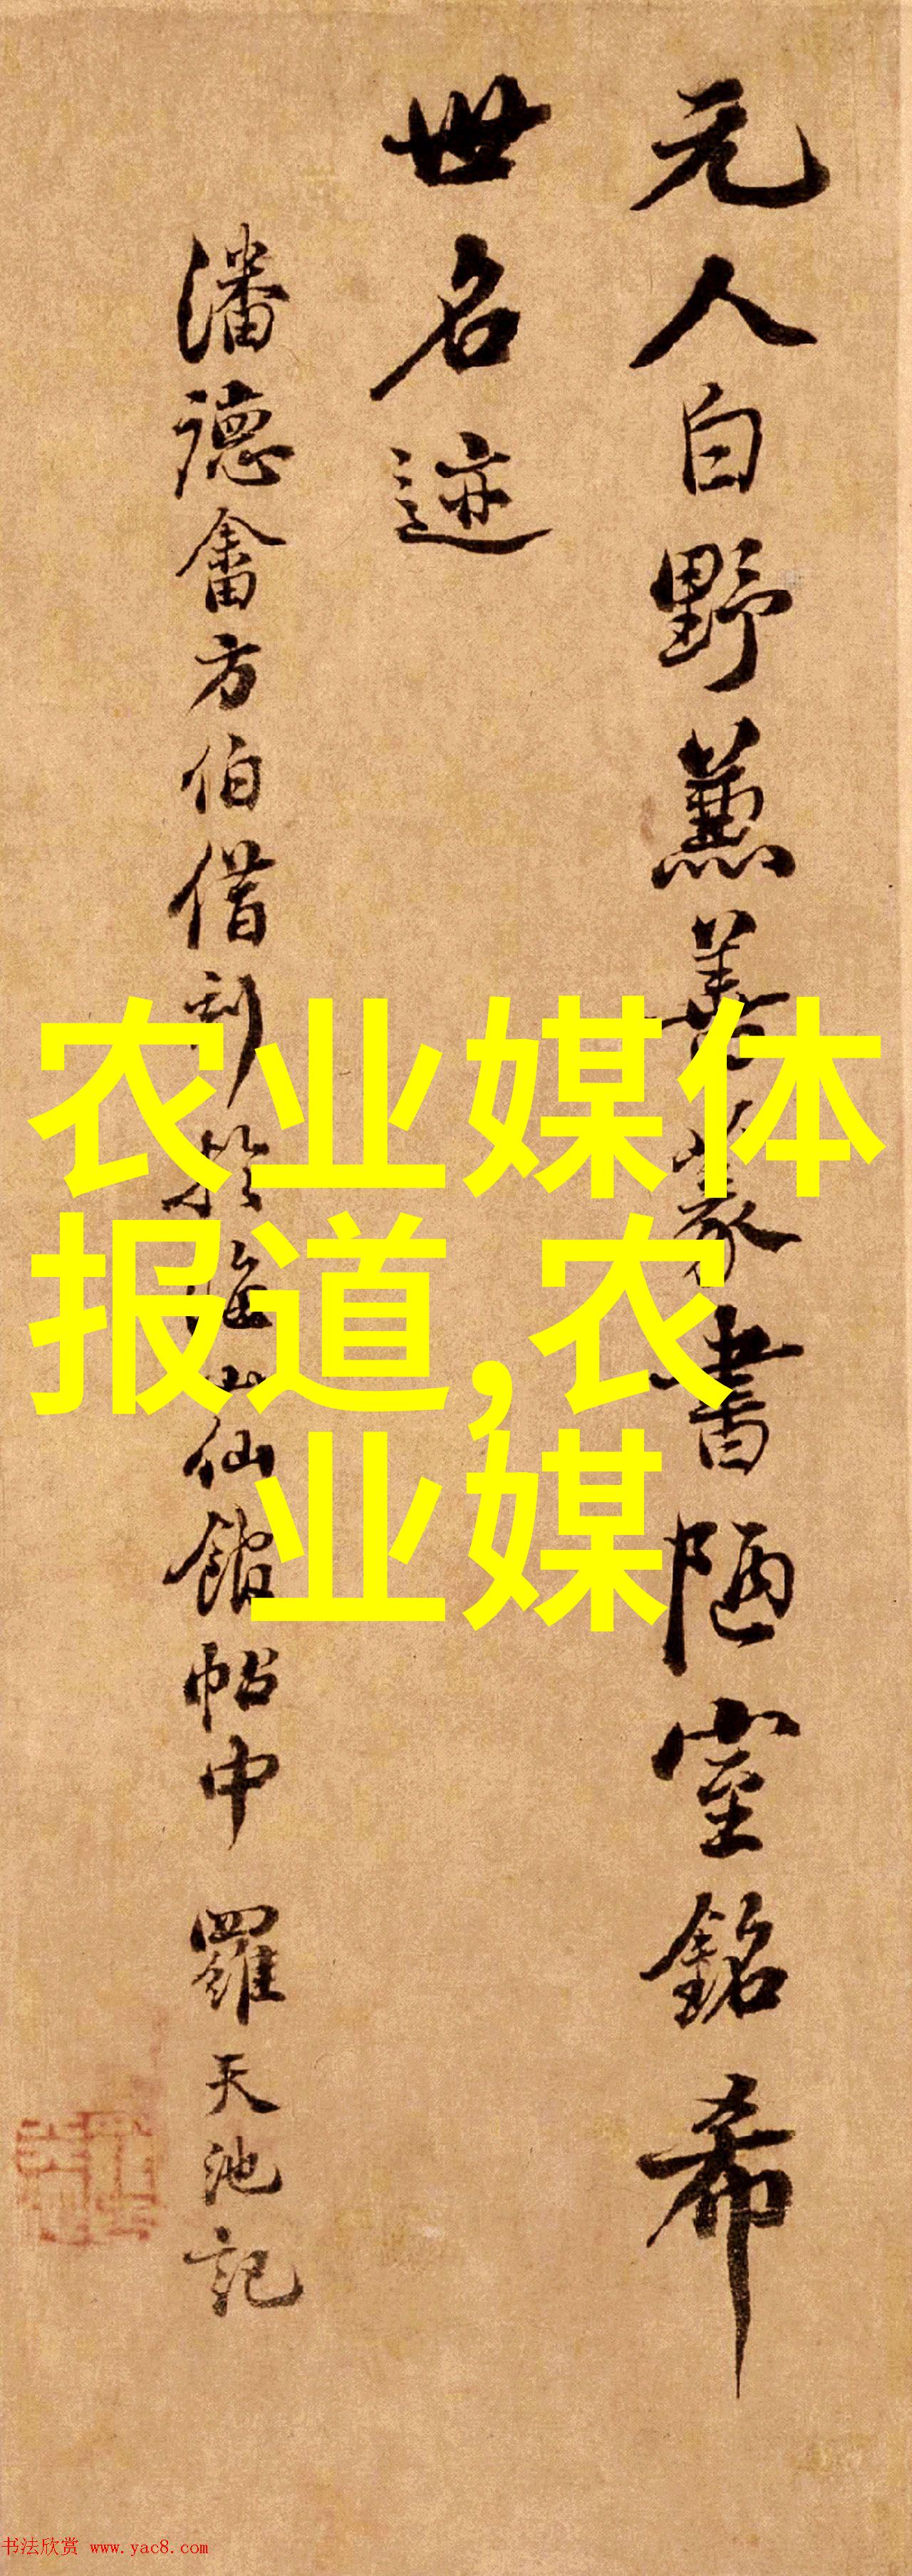 元人白野兼善篆書陋室銘希
世名迹
潘德畬方伯借刻於海山仙館帖中 羅天池記
农业媒体
报道,农
业媒
书法欣赏 www.yac8.com